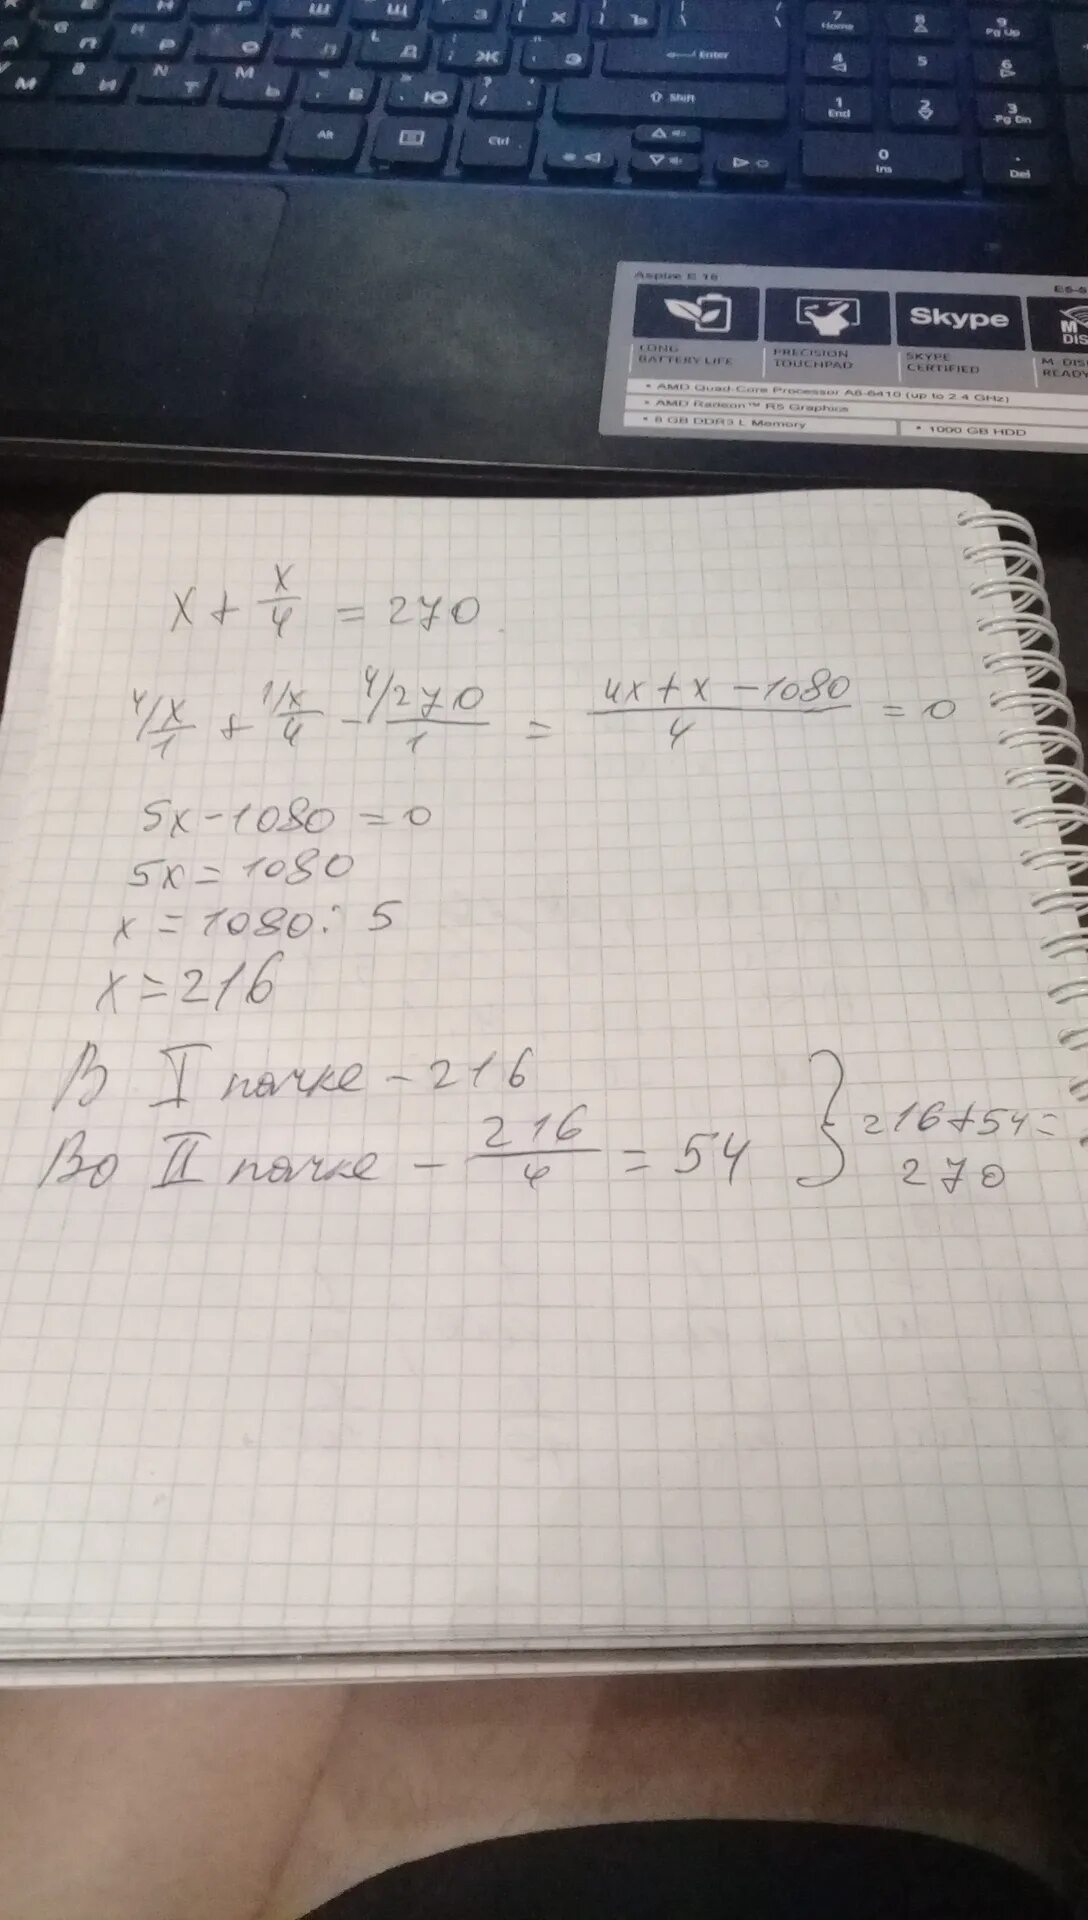 Enter
Shift
Alt
Ctrl
7 Home
8
9 Pg Up
4
5
6
1 End
2
3 Pg Dn
0 Ins
. Del
Aspire E 15
Skype
LONG BATTERY LIFE
PRECISION TOUCHPAD
SKYPE CERTIFIED
• AMD Quad-Core Processor A6-6410 (up to 2.4 GHz)
• AMD Radeon™ R5 Graphics
• 8 GB DDR3 L Memory
• 1000 GB HDD
x + x/4 = 270
4/x/1 + 1/x/4 - 4/270/1 = 4x+x-1080/4 = 0
5x-1080=0
5x=1080
x=1080:5
x=216
В I пачке - 216
Во II пачке - 216/4 = 54 } 216+54=
270